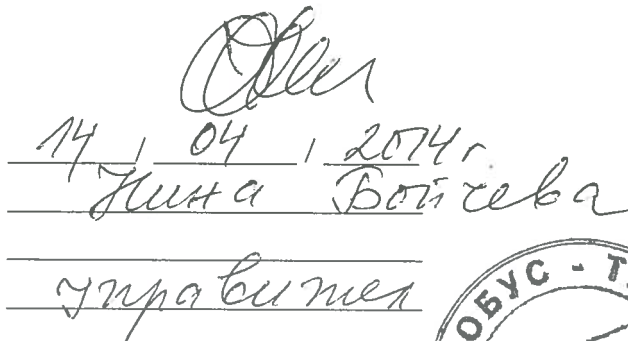 14 / 04 / 2014г
Нина Бойчева
управител
ОБУС - Т